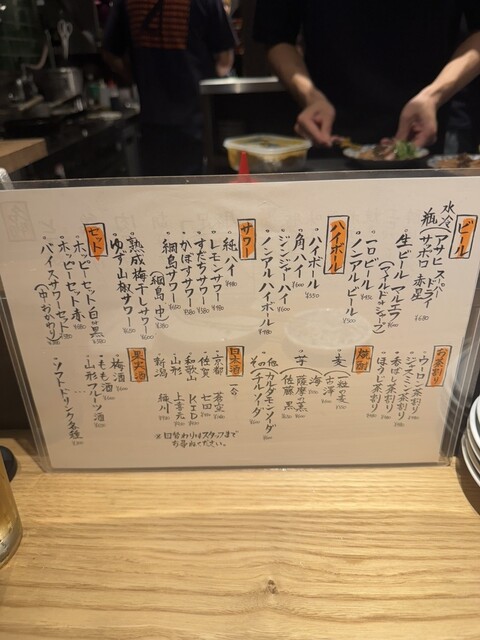 ビール
水冷 瓶
アサヒスーパードライ
サッポロ 赤星 ¥680
・生ビール マルエフ
(マイルド or シャープ)
・一口ビール
・ノンアルビール ¥500
ハイボール
・ハイボール ¥550
・角ハイ ¥600
・ジンジャーハイ ¥600
・ノンアルハイボール ¥480
サワー
・純ハイ ¥480
・レモンサワー
・すだちサワー
・かぼすサワー
・綱島サワー
(綱島 中)
・熟成梅干しサワー
・ゆず山椒サワー ¥600
セット
・ホッピーセット 白・黒
・ホッピーセット赤
・バイスサワーセット
(中おかわり)
お茶割り
・ウーロン茶割り
・ジャスミン茶割り
・香ばし茶割り
・ほうじ茶割り
焼酎
麦
古澤
芋
海
薩摩の薫
佐藤 黒
その他
バルダモンソーダ
日本酒
一合
・京都
・佐賀 七田
・和歌山 KID
・山形 上喜元
・新潟
※日替わりはスタッフまでお尋ねください。
果実酒
・梅酒
・もも酒
・山形フルーツ酒
・ソフトドリンク各種